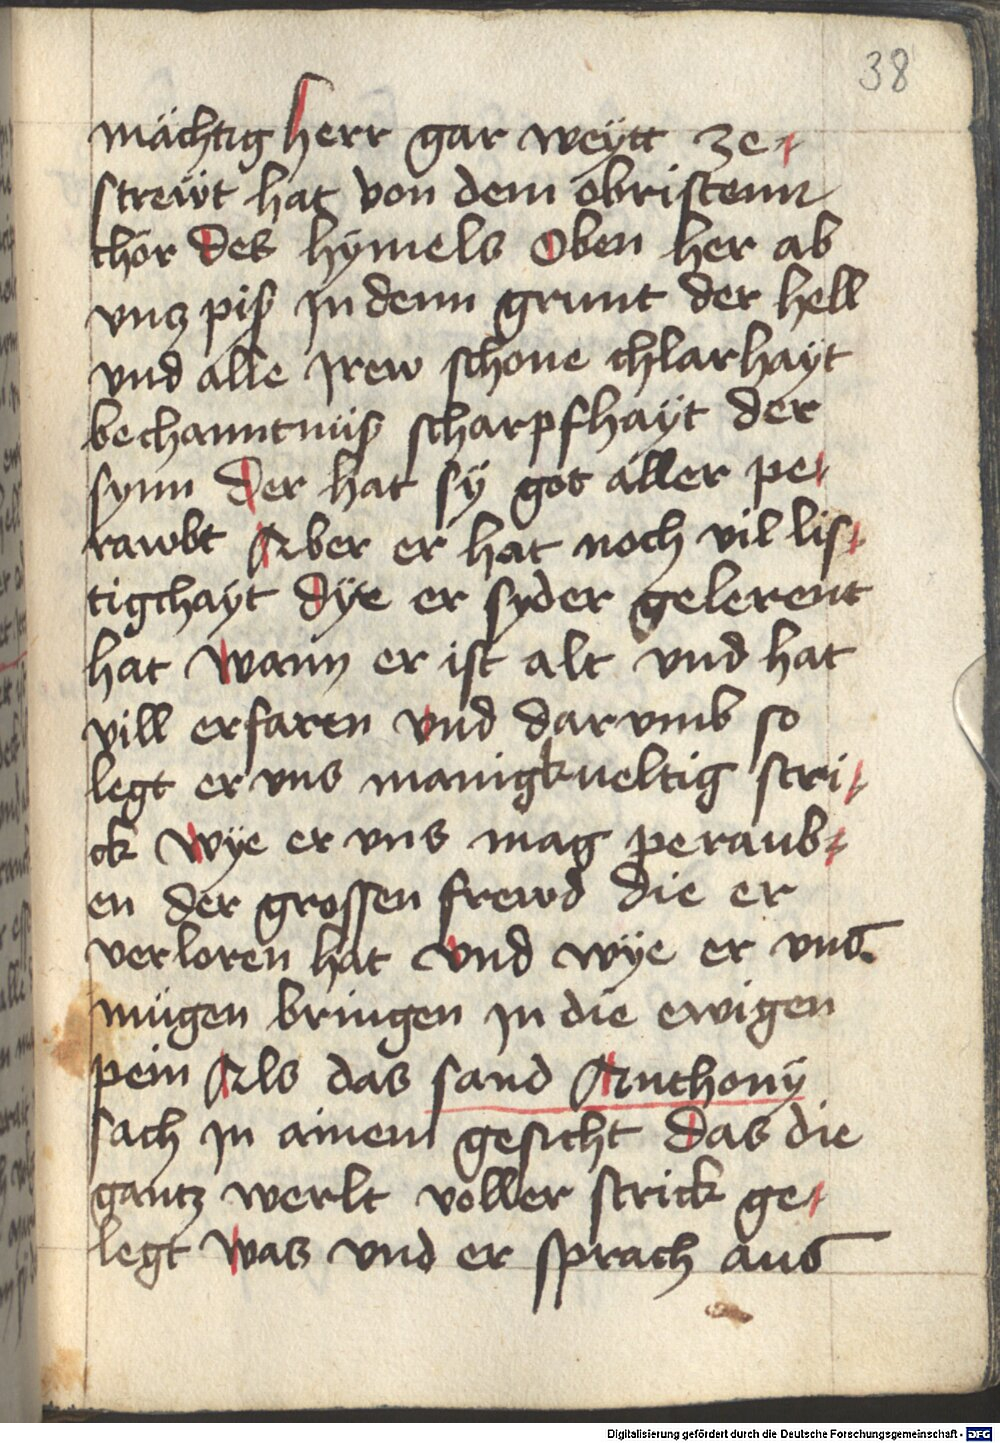 38
mächtig herr gar weÿtt ze-
strewt hat von dem obristenn
chör des hÿmels Oben her ab
vncz piß In denn grunt der hell
vnd alle Irew schone chlarhaÿt
bechanntnüß scharpfhaÿt der
synn Der hat sÿ got aller pe-
rawbt Aber er hat noch vil lis-
tigchaÿt Dÿe er syder gelerent
hat Wann er ist alt vnd hat
vill erfaren vnd darvmb so
legt er vns manigkueltig stri-
ck Wÿe er vns mag peraub-
en der grossen frewd die er
verloren hat vnd wÿe er vns
mügen bringen In die ewigen
pein Als das sand Anthonÿ
sach In ainem gesicht Das die
gantz werlt voller strick ge-
legt Was vnd er sprach aus
Digitalisierung gefördert durch die Deutsche Forschungsgemeinschaft - DFG